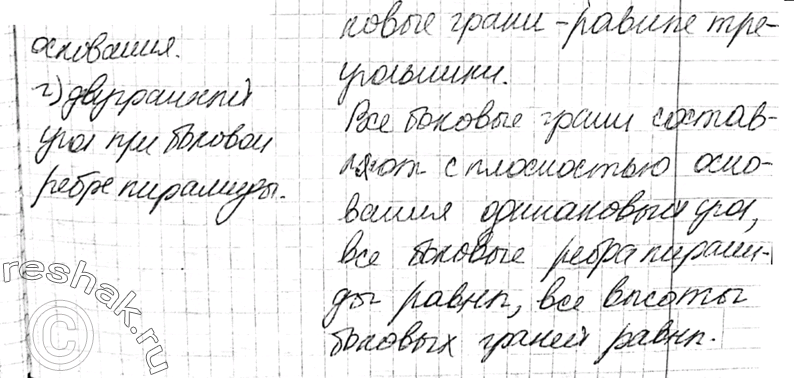 основания.
г) двугранный
угол при боковом
ребре пирамиды.
ковые грани - равные тре-
угольники.
Все боковые грани состав-
ляют с плоскостью осно-
вания одинаковый угол,
все боковые ребра пирами-
ды равны, все высоты
боковых граней равны.
reshak.ru
©